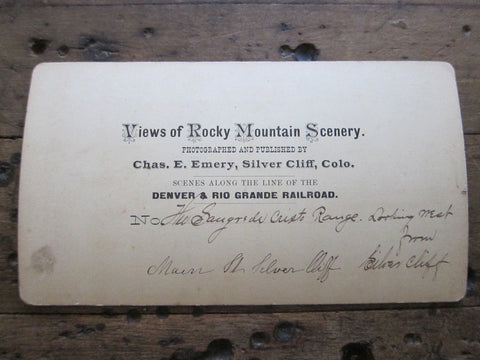 Views of Rocky Mountain Scenery.
PHOTOGRAPHED AND PUBLISHED BY
Chas. E. Emery, Silver Cliff, Colo.
SCENES ALONG THE LINE OF THE
DENVER & RIO GRANDE RAILROAD.
No. The Sangre de Cristo Range. Looking West
from
Main St Silver Cliff Silver Cliff